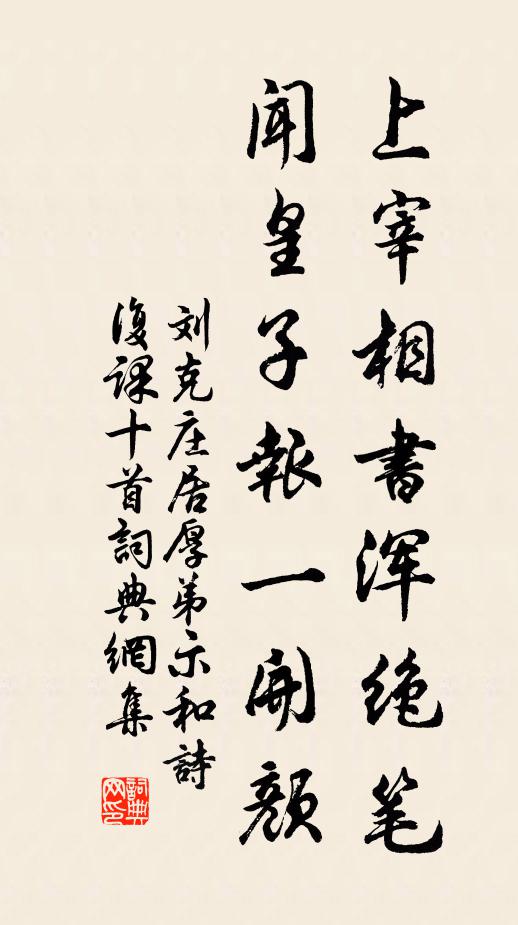 上宰相書浑絶笔
闻皇子報一開颜
刘克庄居厚弟示和詩
復課十首詞典網集
詞典
网印